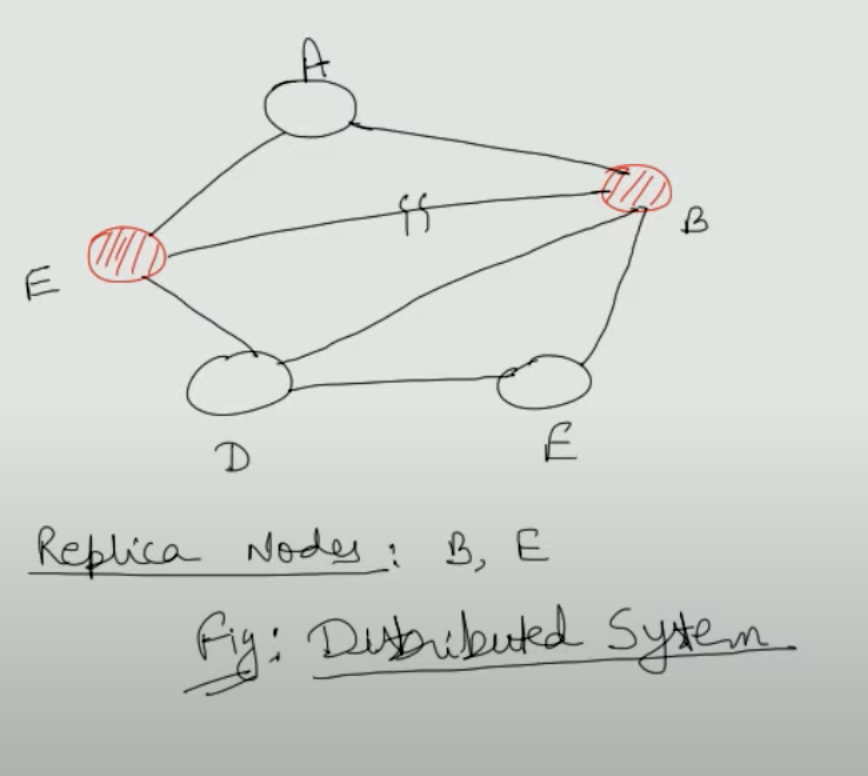 A
B
E
D
E
Replica Nodes: B, E
Fig: Distributed System